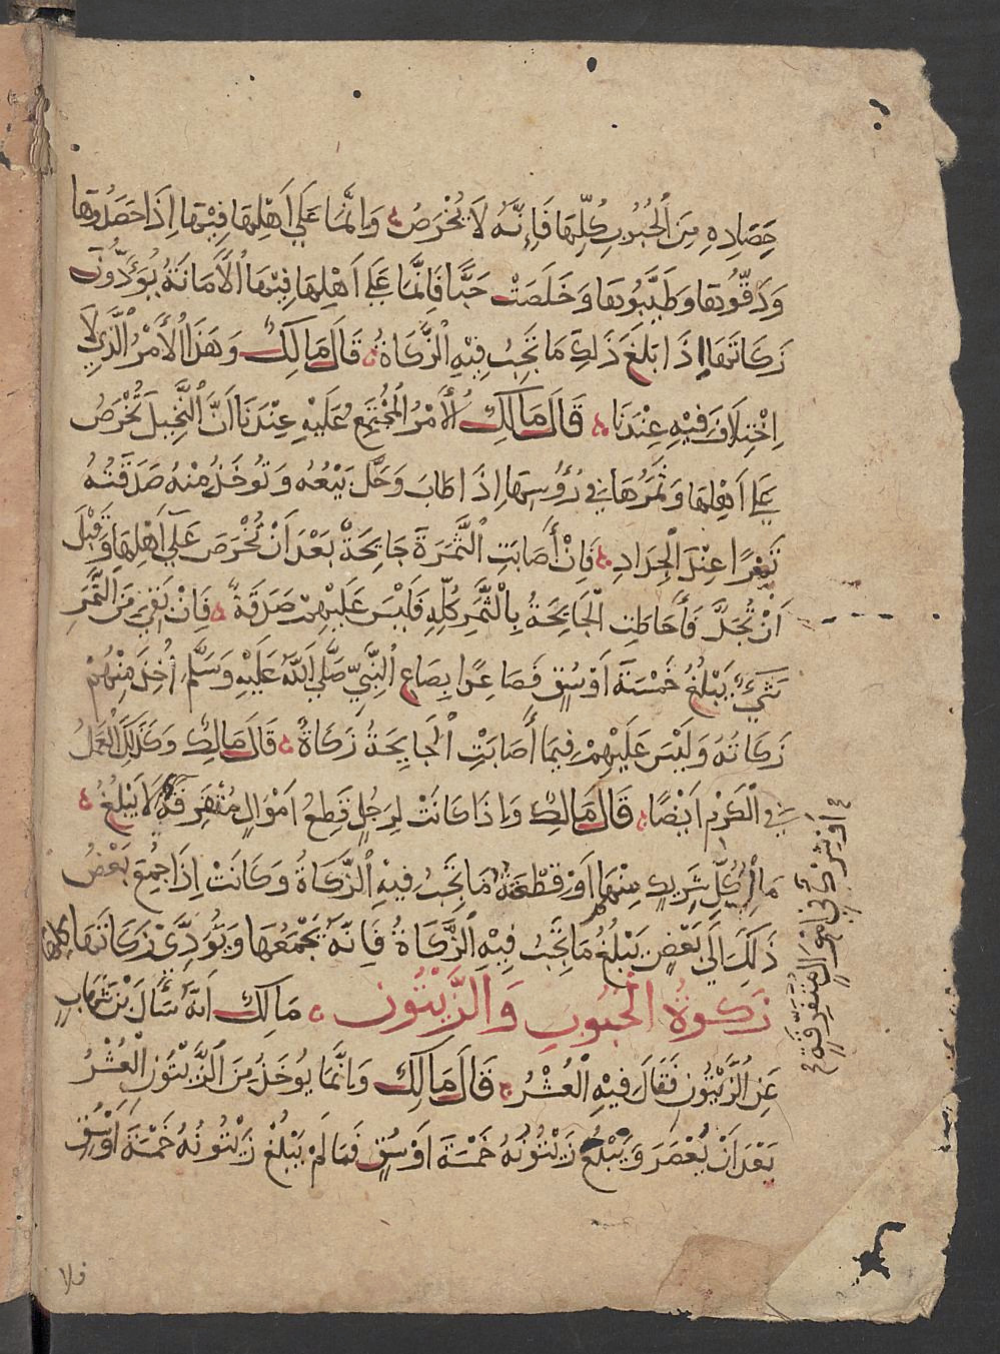 حَصَادِهِ مِنَ الْحُبُوبِ كُلِّهَا فَإِنَّهُ لَا يُخْرَصُ وَإِنَّمَا عَلَى أَهْلِهَا فِيهَا إِذَا حَصَدُوهَا
وَدَقُّوهَا وَطَيَّبُوهَا وَخَلَصَتْ حَبًّا فَإِنَّمَا عَلَى أَهْلِهَا فِيهَا الْأَمَانَةُ يُؤَدُّونَ
زَكَاتَهَا إِذَا بَلَغَ ذَلِكَ مَا تَجِبُ فِيهِ الزَّكَاةُ قَالَ مَالِكٌ وَهَذَا الْأَمْرُ الَّذِي لَا
اخْتِلَافَ فِيهِ عِنْدَنَا قَالَ مَالِكٌ الْأَمْرُ الْمُجْتَمَعُ عَلَيْهِ عِنْدَنَا أَنَّ النَّخِيلَ تُخْرَصُ
عَلَى أَهْلِهَا وَثَمَرُهَا فِي رُؤُسِهَا إِذَا طَابَ وَحَلَّ بَيْعُهُ وَتُوخَذُ مِنْهُ صَدَقَتُهُ
تَمْرًا عِنْدَ الْجِدَادِ فَإِنْ أَصَابَتِ الثَّمَرَةَ جَايِحَةٌ بَعْدَ أَنْ تُخْرَصَ عَلَى أَهْلِهَا وَقَبْلَ
أَنْ تُجَدَّ فَأَحَاطَتِ الْجَايِحَةُ بِالثَّمَرِ كُلِّهِ فَلَيْسَ عَلَيْهِمْ صَدَقَةٌ فَإِنْ بَقِيَ مِنَ الثَّمَرِ
شَيْءٌ يَبْلُغُ خَمْسَةَ أَوْسُقٍ فَصَاعِدًا بِصَاعِ النَّبِيِّ صَلَّى اللَّهُ عَلَيْهِ وَسَلَّمَ أُخِذَ مِنْهُمْ
زَكَاتُهُ وَلَيْسَ عَلَيْهِمْ فِيمَا أَصَابَتِ الْجَايِحَةُ زَكَاةٌ قَالَ مَالِكٌ وَكَذَلِكَ الْعَمَلُ
فِي الْكَرْمِ أَيْضًا قَالَ مَالِكٌ وَإِذَا كَانَتْ لِرَجُلٍ قِطَعُ أَمْوَالٍ مُتَفَرِّقَةٍ لَا يَبْلُغُ
أَوْ شِرْكٌ فِي أَمْوَالٍ مُتَفَرِّقَةٍ
مَالُ كُلِّ شَرِيكٍ مِنْهُمْ أَوْ قِطْعَةٍ مَا تَجِبُ فِيهِ الزَّكَاةُ وَكَانَتْ إِذَا جُمِعَ بَعْضُ
ذَلِكَ إِلَى بَعْضٍ يَبْلُغُ مَا تَجِبُ فِيهِ الزَّكَاةُ فَإِنَّهُ يَجْمَعُهَا وَيُؤَدِّي زَكَاتَهَا كلها
زَكوةُ الْحُبُوبِ وَالزَّيْتُونِ مَالِكٌ أَنَّهُ سَأَلَ بْنَ شِهَابٍ
عَنِ الزَّيْتُونِ فَقَالَ فِيهِ الْعُشْرُ قَالَ مَالِكٌ وَإِنَّمَا يُوخَذُ مِنَ الزَّيْتُونِ الْعُشْرُ
بَعْدَ أَنْ يُعْصَرَ وَيَبْلُغُ زَيْتُونُهُ خَمْسَةَ أَوْسُقٍ فَمَا لَمْ يَبْلُغْ زَيْتُونُهُ خَمْسَةَ أَوْسُقٍ
فلا